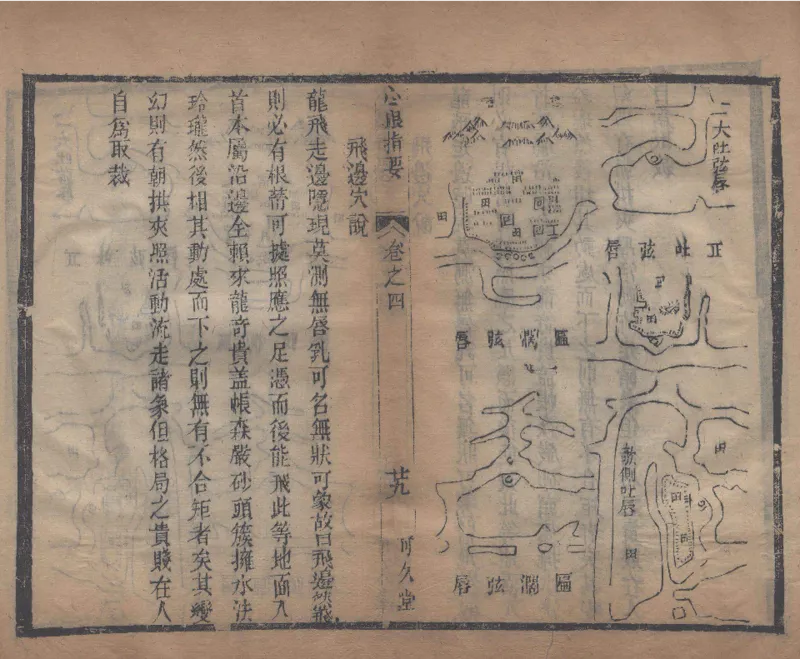 大吐弦唇
正吐弦唇
欹側吐唇
田
田
田
匾濶弦唇
匾濶弦唇
心眼指要
卷之四
廿九
可久堂
飛邊穴說
龍飛走邊隱現莫測無唇乳可名無狀可象故曰飛邊然飛
則必有根蒂可據照應之足憑而後能飛此等地面入
首本屬沿邊全賴來龍奇貴盖帳森嚴砂頭簇擁水法
玲瓏然後相其動處而下之則無有不合矩者矣其變
幻則有朝拱夾照活動流走諸象但格局之貴賤在人
自爲取裁